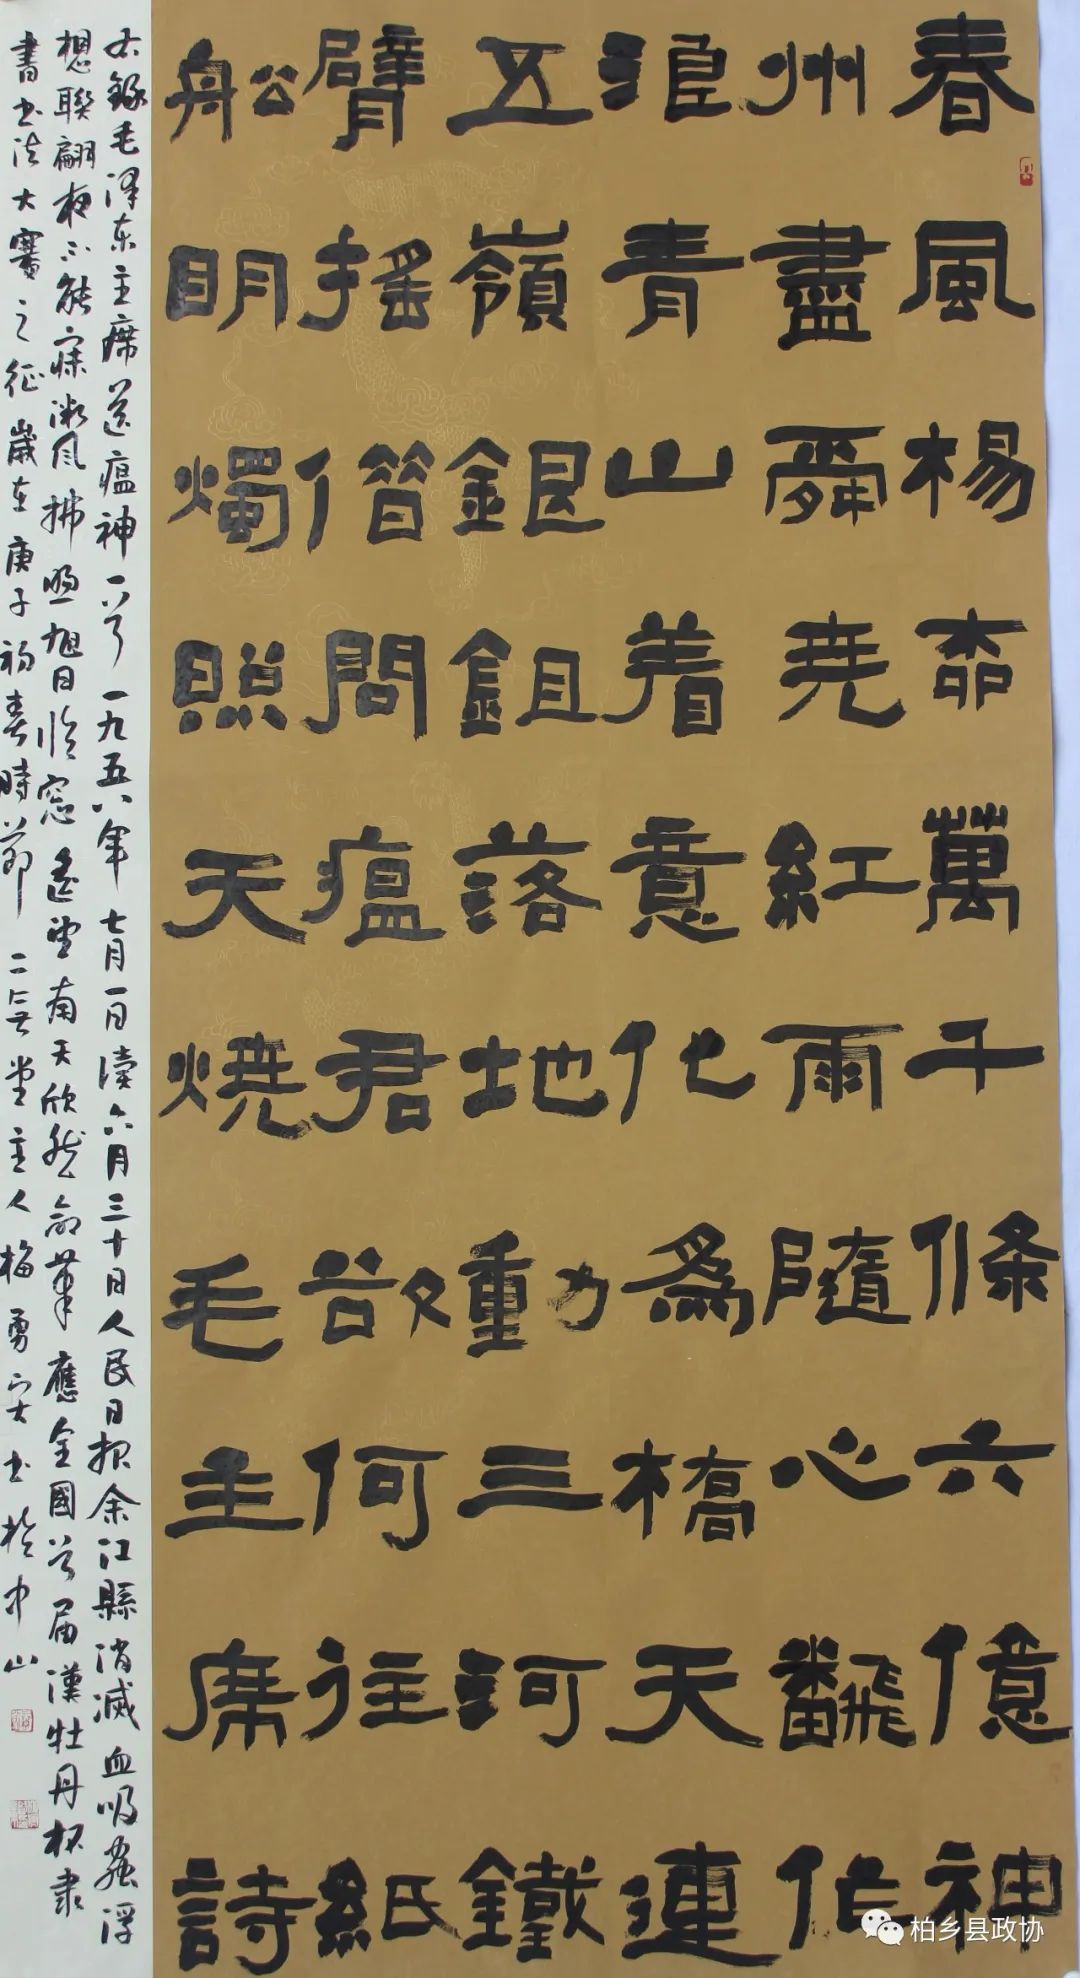 春風楊柳萬千條六億神
州盡舜堯紅雨隨心翻作
浪青山着意化為橋天連
五嶺銀鉏落地動三河鐵
臂搖借問瘟君欲何往紙
船明燭照天燒毛主席詩
右錄毛澤東主席送瘟神一首一九五八年七月一日讀六月三十日人民日報余江縣消滅血吸蟲浮
想聯翩夜不能寐微風拂煦旭日臨窓遙望南天欣然命筆應全國首屆漢牡丹杯隶
書書法大賽之征歲在庚子初春時節二堂主人梅勇書於中山
柏乡县政协